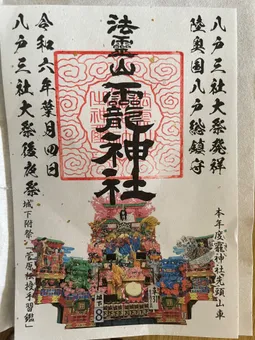 八戸三社大祭発祥
陸奥国八戸総鎮守
法霊山 龗神社
令和六年葉月四日
八戸三社大祭後夜祭
本年度龗神社先頭山車
城下附祭「菅原伝授手習鑑」
城下
8